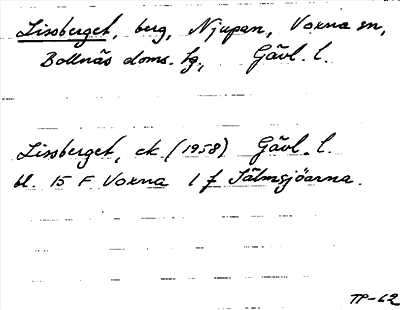 Lissberget, berg, Njupan, Voxna sn,
Bollnäs doms. hg, Gävl. l.
Lissberget, ek (1958) Gävl. l.
bl. 15 F Voxna 1 f Tälmsjöarna.
TP-62